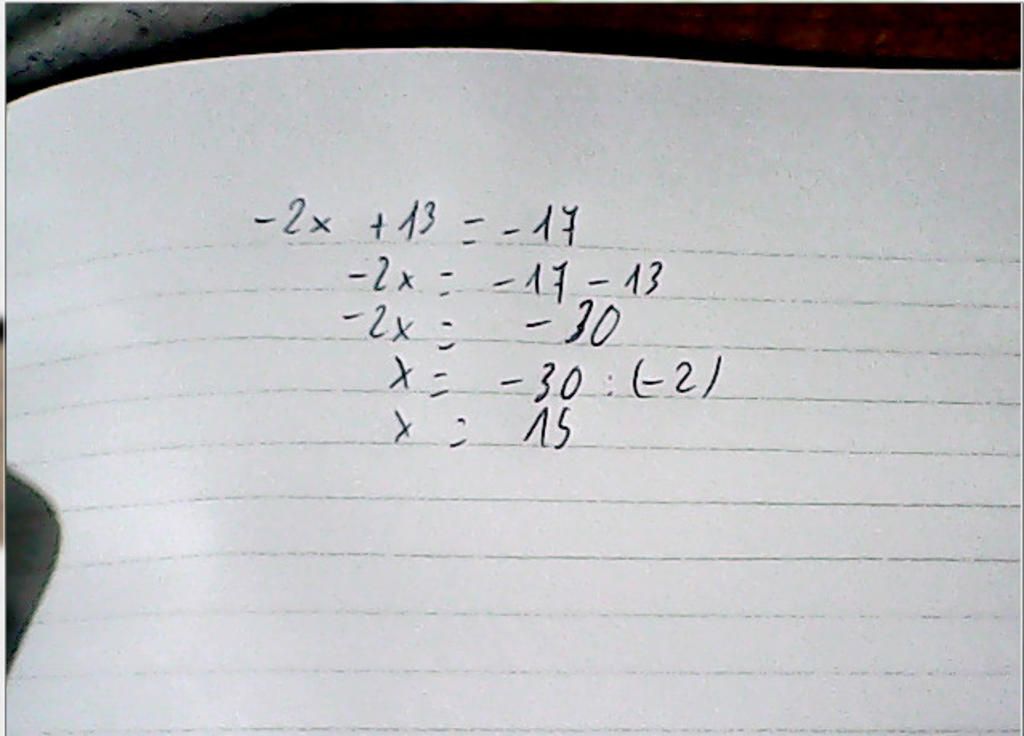 -2x + 13 = -17
-2x = -17 - 13
-2x = -30
x = -30 : (-2)
x = 15